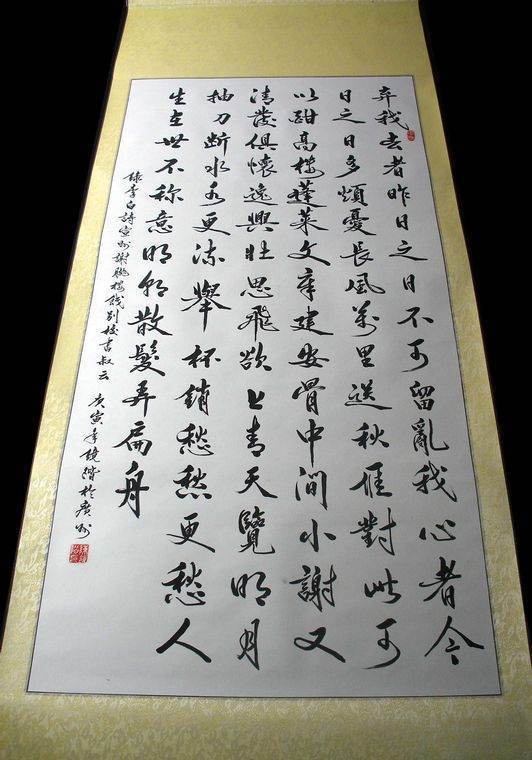 弃我去者昨日之日不可留亂我心者今
日之日多煩憂長風萬里送秋雁對此可
以酣高樓蓬萊文章建安骨中間小謝又
清發俱懷逸興壯思飛欲上青天覽明月
抽刀断水水更流舉杯銷愁愁更愁人
生在世不称意明朝散髮弄扁舟
錄李白詩宣州謝朓樓餞別校書叔云 庚寅 於廣州